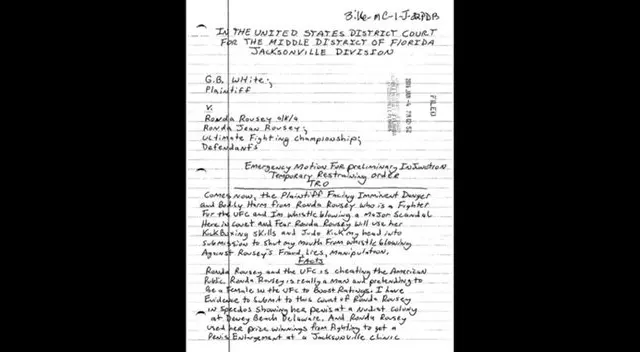 3:16-MC-1-J-32PDB
IN THE UNITED STATES DISTRICT COURT
FOR THE MIDDLE DISTRICT OF FLORIDA
JACKSONVILLE DIVISION
G.B. WHite;
Plaintiff
FILED
V.
Ronda Rousey a/k/a
Ronda Jean Rousey;
Ultimate Fighting Championship;
Defendants
Emergency Motion For preliminary Injunction
Temporary Restraining order
TRO
Comes Now, the Plaintiff Facing Imminent Danger
and Bodily Harm from Ronda Rousey who is a Fighter
For the UFC and I'm whistle blowing a Major Scandal
Here in Court and Fear Ronda Rousey will use her
KickBoxing skills and Judo Kick my head into
Submission to Shut my Mouth From whistle blowing
Against Rousey's Fraud, Lies, Manipulation.
Facts
Ronda Rousey and the UFC is cheating the American
Public. Ronda Rousey is really a Man and pretending to
Be a Female in the UFC to Boost Ratings. I have
Evidence to Submit to this Court of Ronda Rousey
in Speedos showing her penis at a Nudist Colony
at Dewey Beach Delaware. And Ronda Rousey
used her prize winnings from Fighting to get a
Penis Enlargement at a Jacksonville Clinic